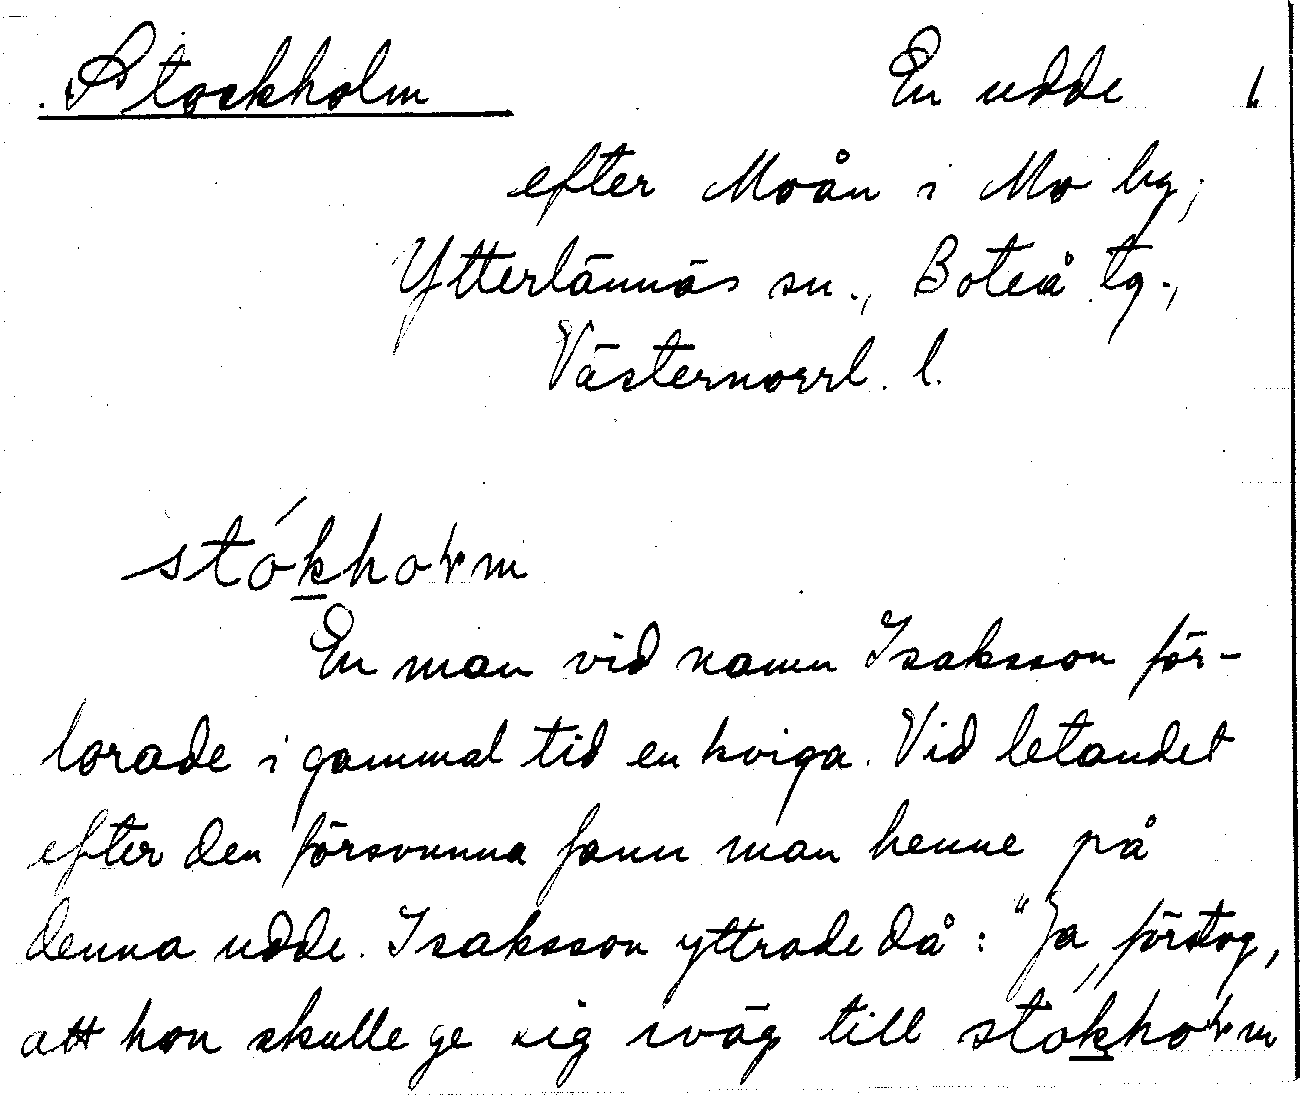 Stockholm En udde 1
efter Moån i Mo by,
Ytterlännäs sn., Boteå tg.,
Västernorrl. l.
stók̲hoḷm
En man vid namn Isaksson för-
lorade i gammal tid en kviga. Vid letandet
efter den försvunna fann man henne på
denna udde. Isaksson yttrade då: "Ja, förstog,
att hon skulle ge sig iväg till stók̲hoḷm